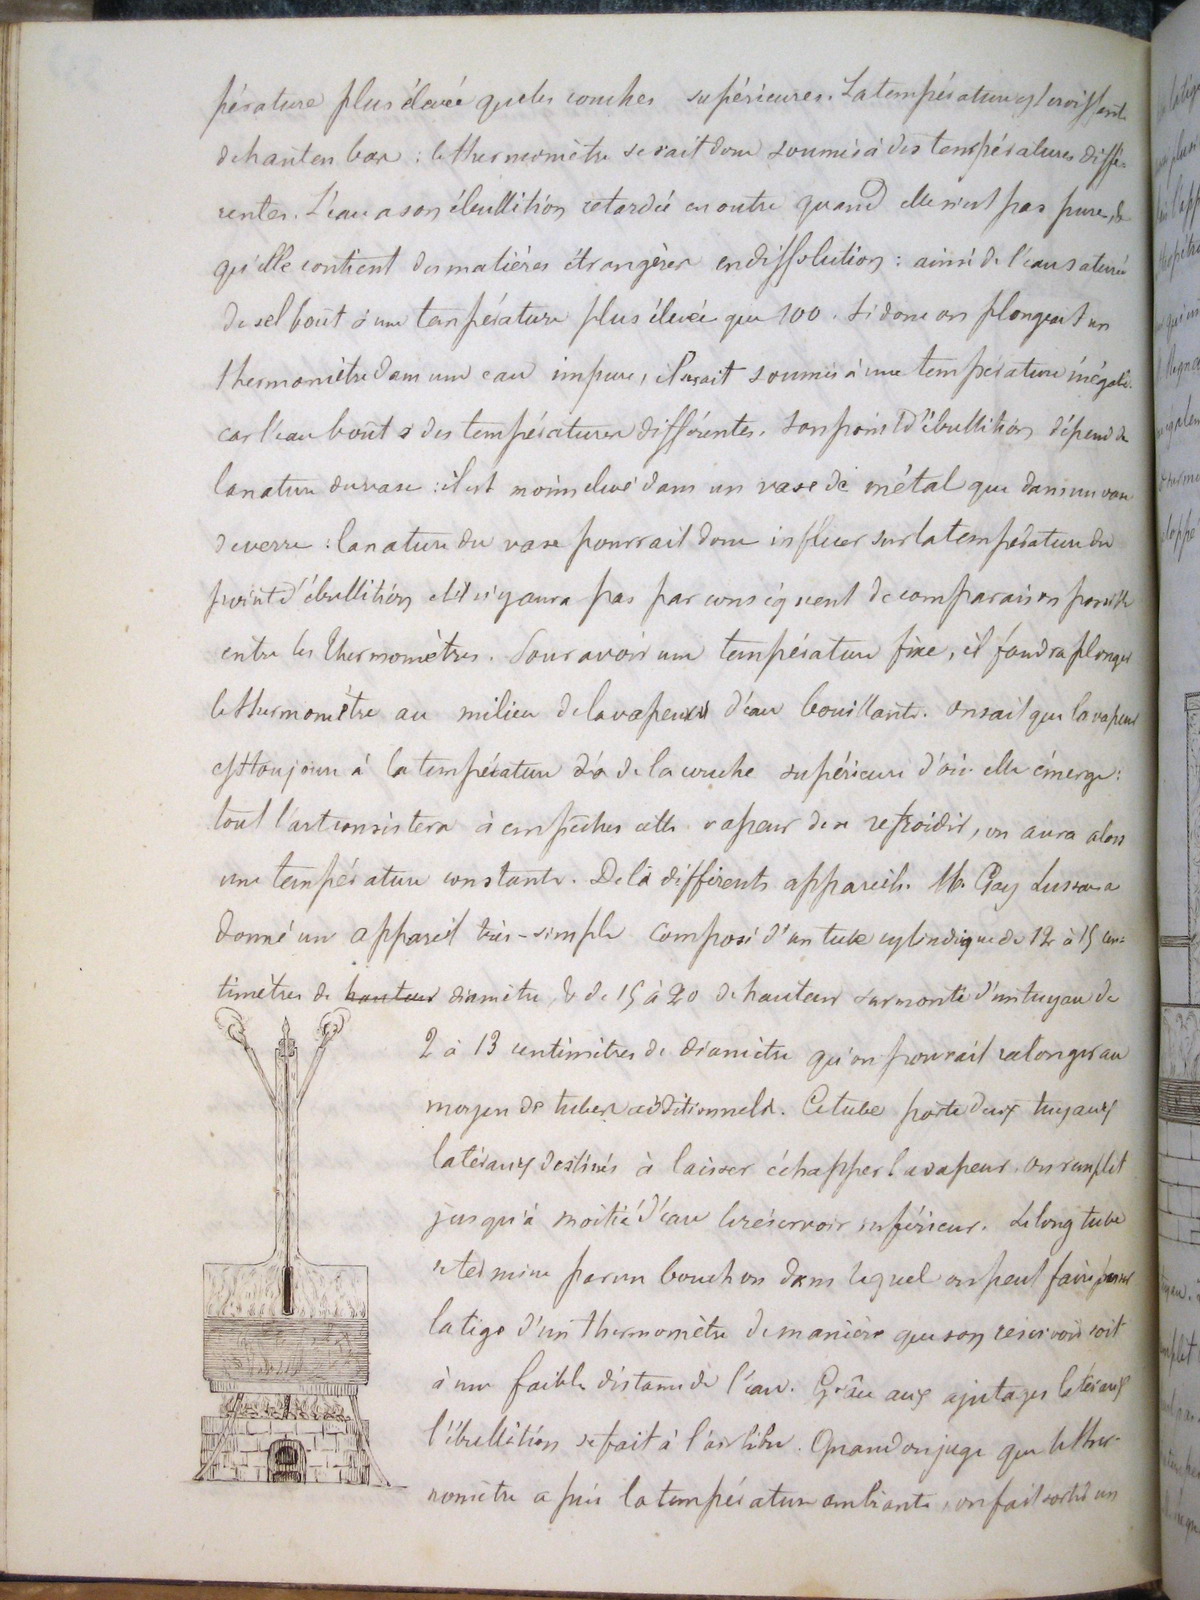 pérature plus élevée que les couches supérieures. La température est croissante
de haut en bas : le thermomètre serait donc soumis à des températures diffé-
rentes. L'eau a son ébullition retardée en outre quand elle n'est pas pure, &
qu'elle contient des matières étrangères en dissolution : ainsi de l'eau saturée
de sel bout à une température plus élevée que 100. Si donc on plongeait un
thermomètre dans une eau impure, il serait soumis à une température inégale
car l'eau bout à des températures différentes. Son point d'ébullition dépend de
la nature du vase : il est moins élevé dans un vase de métal que dans un vase
de verre : la nature du vase pourrait donc influer sur la température du
point d'ébullition et il n'y aura pas par conséquent de comparaison possible
entre les thermomètres. Pour avoir une température fixe, il faudra plonger
le thermomètre au milieu de la vapeur d'eau bouillante. On sait que la vapeur
est toujours à la température de la couche supérieure d'où elle émerge :
tout l'art consistera à empêcher cette vapeur de se refroidir, on aura alors
une température constante. De là différents appareils. Mr. Gay Lussac a
donné un appareil très-simple composé d'un tube cylindrique de 12 à 15 cen-
timètres de hauteur diamètre, & de 15 à 20 de hauteur surmonté d'un tuyau de
2 à 13 centimètres de diamètre qu'on pourrait ralonger au
moyen de tubes additionnels. Ce tube porte deux tuyaux
latéraux destinés à laisser échapper la vapeur. On remplit
jusqu'à moitié d'eau le réservoir inférieur. Le long tube
se termine par un bouchon dans lequel on peut faire passer
la tige d'un thermomètre de manière que son réservoir soit
à une faible distance de l'eau. Grâce aux ajutages latéraux
l'ébullition se fait à l'air libre. Quand on juge que le ther-
momètre a pris la température ambiante, on fait sortir un